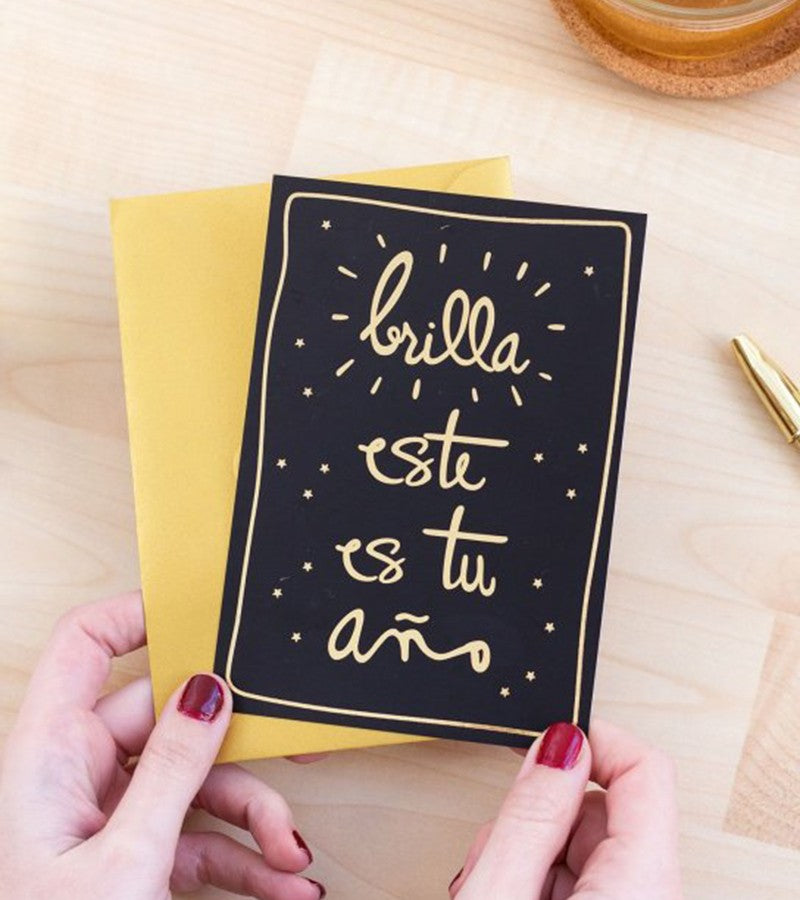 brilla
este
es tu
año